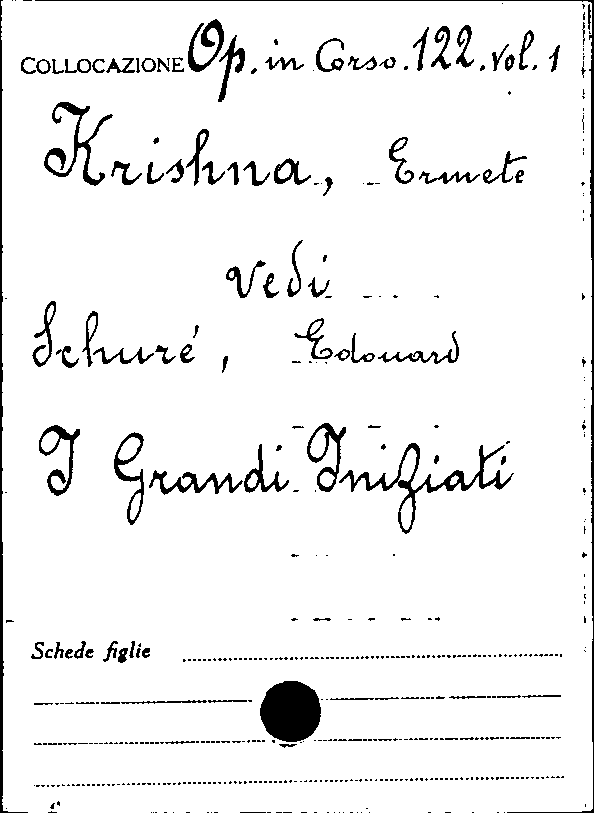 COLLOCAZIONE Op. in Corso. 122. vol. 1
Krishna, Ermete
vedi
Schuré, Edouard
I Grandi Iniziati
Schede figlie